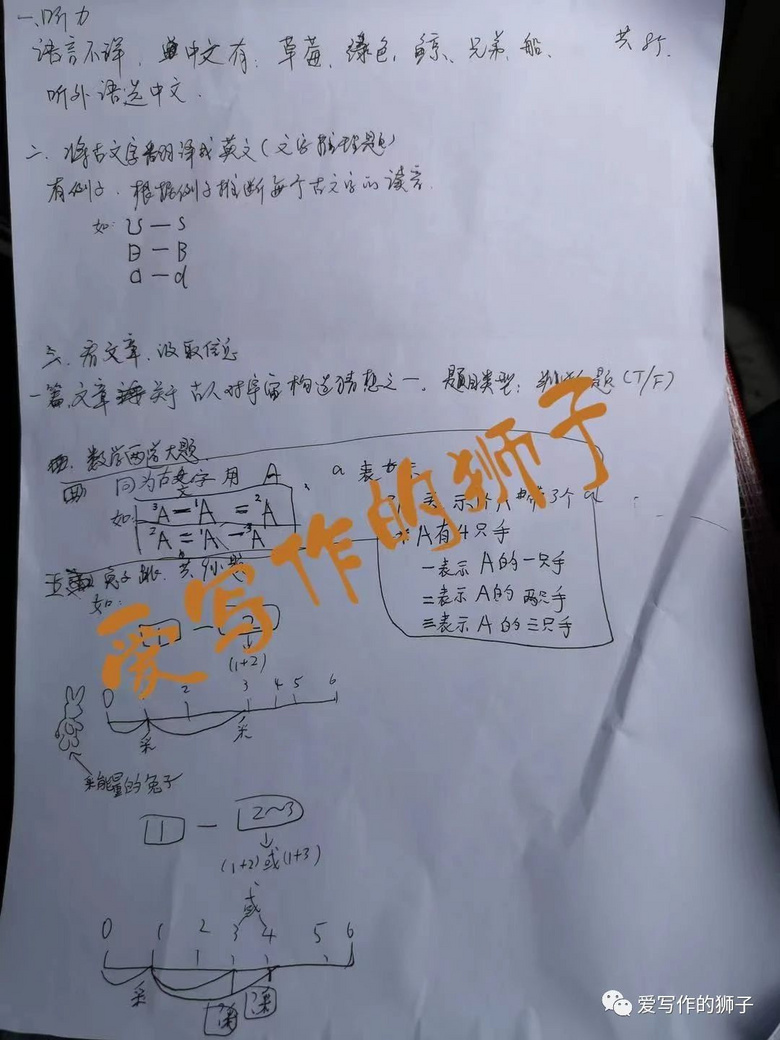 一、听力
语言不详，中文有：草莓、绿色、鲸、兄弟、船、 共8行
听外语选中文.
二、将古文字翻译成英文(文字推理题)
有例子.根据例子推断每个古文字的读音.
如:
— S
日 — B
a — d
三、看文章.汲取信息
一篇文章 关于古人对宇宙构造猜想之一. 题目类型: 判断题(T/F)
四. 数学两道大题
同为古文字 用 A a 表示
如 ³A-¹A=²A
²A=¹A-³A
A有4只手
一表示A的一只手
二表示A的两只手
三表示A的三只手
五 兔子跳.共9小题
如:
1 - 2
(1+2)
0 2 3 4 5 6
采 采
采能量的兔子
1 - 2~3
(1+2)或(1+3)
或
0 1 2 3 4 5 6
采
采 采
爱写作的狮子
爱写作的狮子